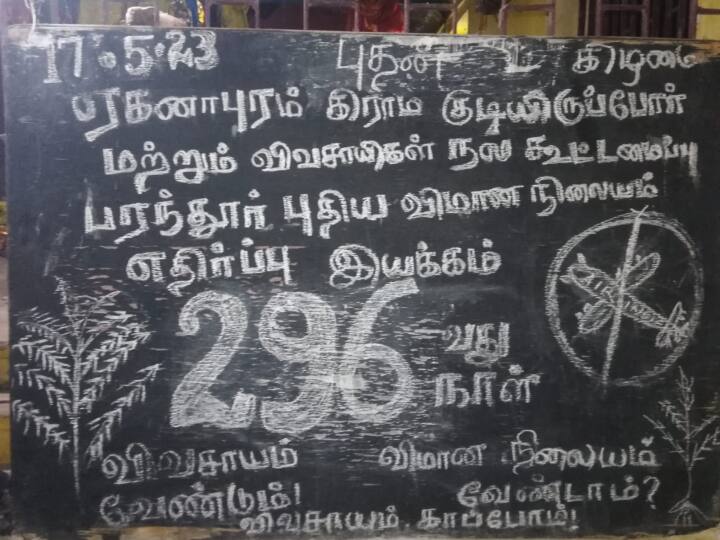 17.5.23 புதன் கிழமை
ஏகனாபுரம் கிராம குடியிருப்போர்
மற்றும் விவசாயிகள் நல கூட்டமைப்பு
பரந்தூர் புதிய விமான நிலையம்
எதிர்ப்பு இயக்கம்
296 வது
நாள்
விவசாயம் விமான நிலையம்
வேண்டும்! வேண்டாம்?
விவசாயம் காப்போம்!